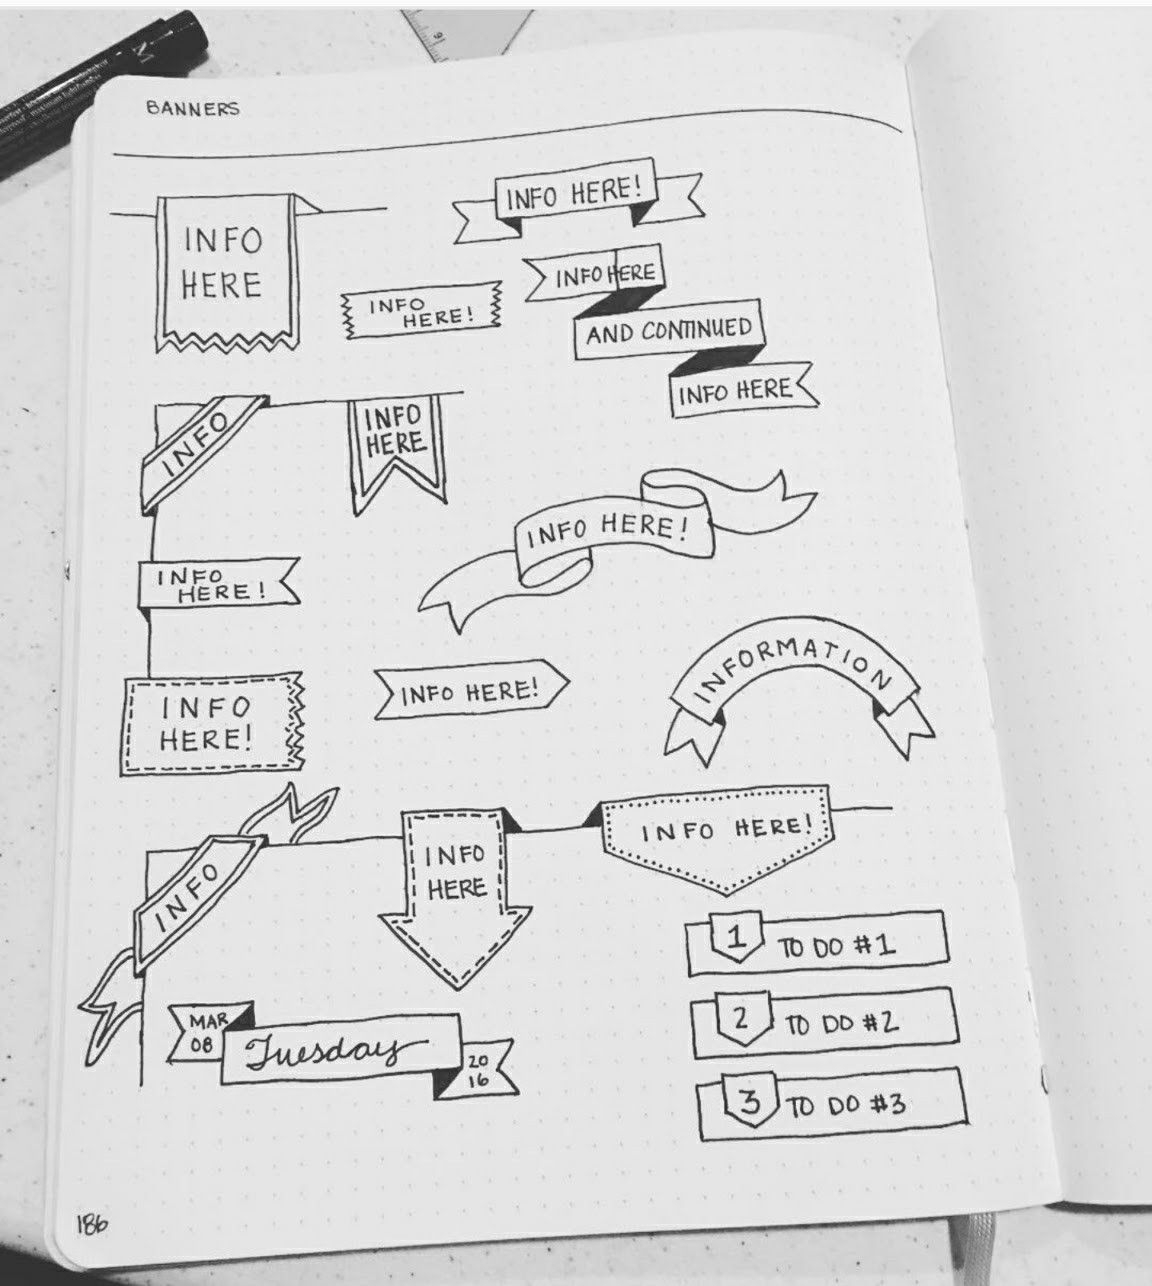 BANNERS
INFO
HERE
INFO HERE!
INFO
HERE!
INFO HERE
AND CONTINUED
INFO HERE
INFO
INFO
HERE
INFO HERE!
INFO
HERE!
INFO
HERE!
INFO HERE!
INFORMATION
INFO
INFO
HERE
INFO HERE!
1 TO DO #1
2 TO DO #2
3 TO DO #3
MAR
08
Tuesday
20
16
186
M
16